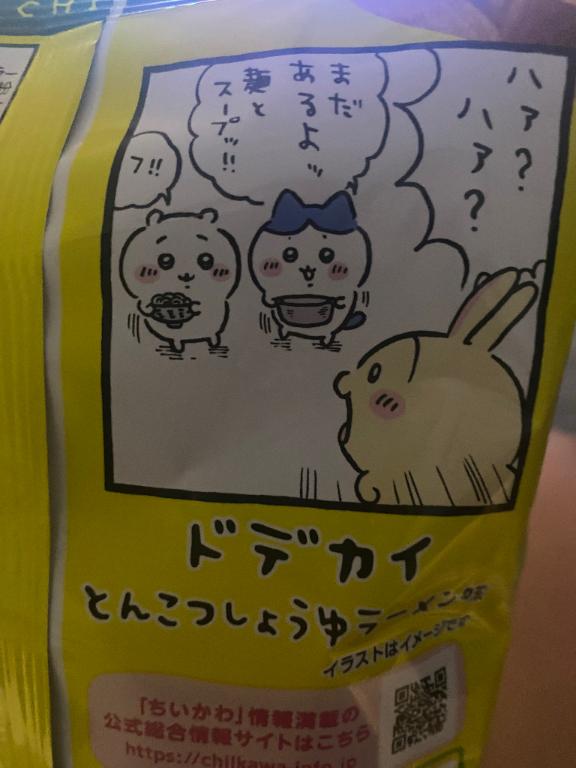 CHI
ハァ?
ハァ?
まだ
あるよッ
麺と
スープッ!!
フ!!
ドデカイ
とんこつしょうゆラーメン味
イラストはイメージです
「ちいかわ」情報満載の
公式総合情報サイトはこちら
https://chiikawa-info.jp